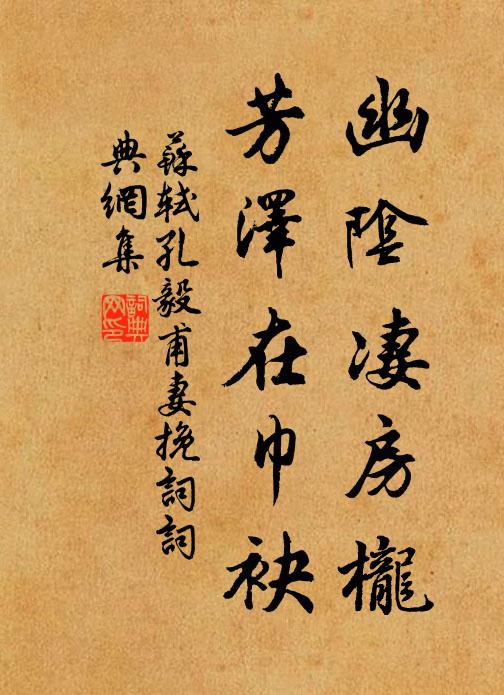 幽陰凄房櫳
芳澤在巾袂
蘇軾孔毅甫妻挽詞詞
典網集
詞典
网印